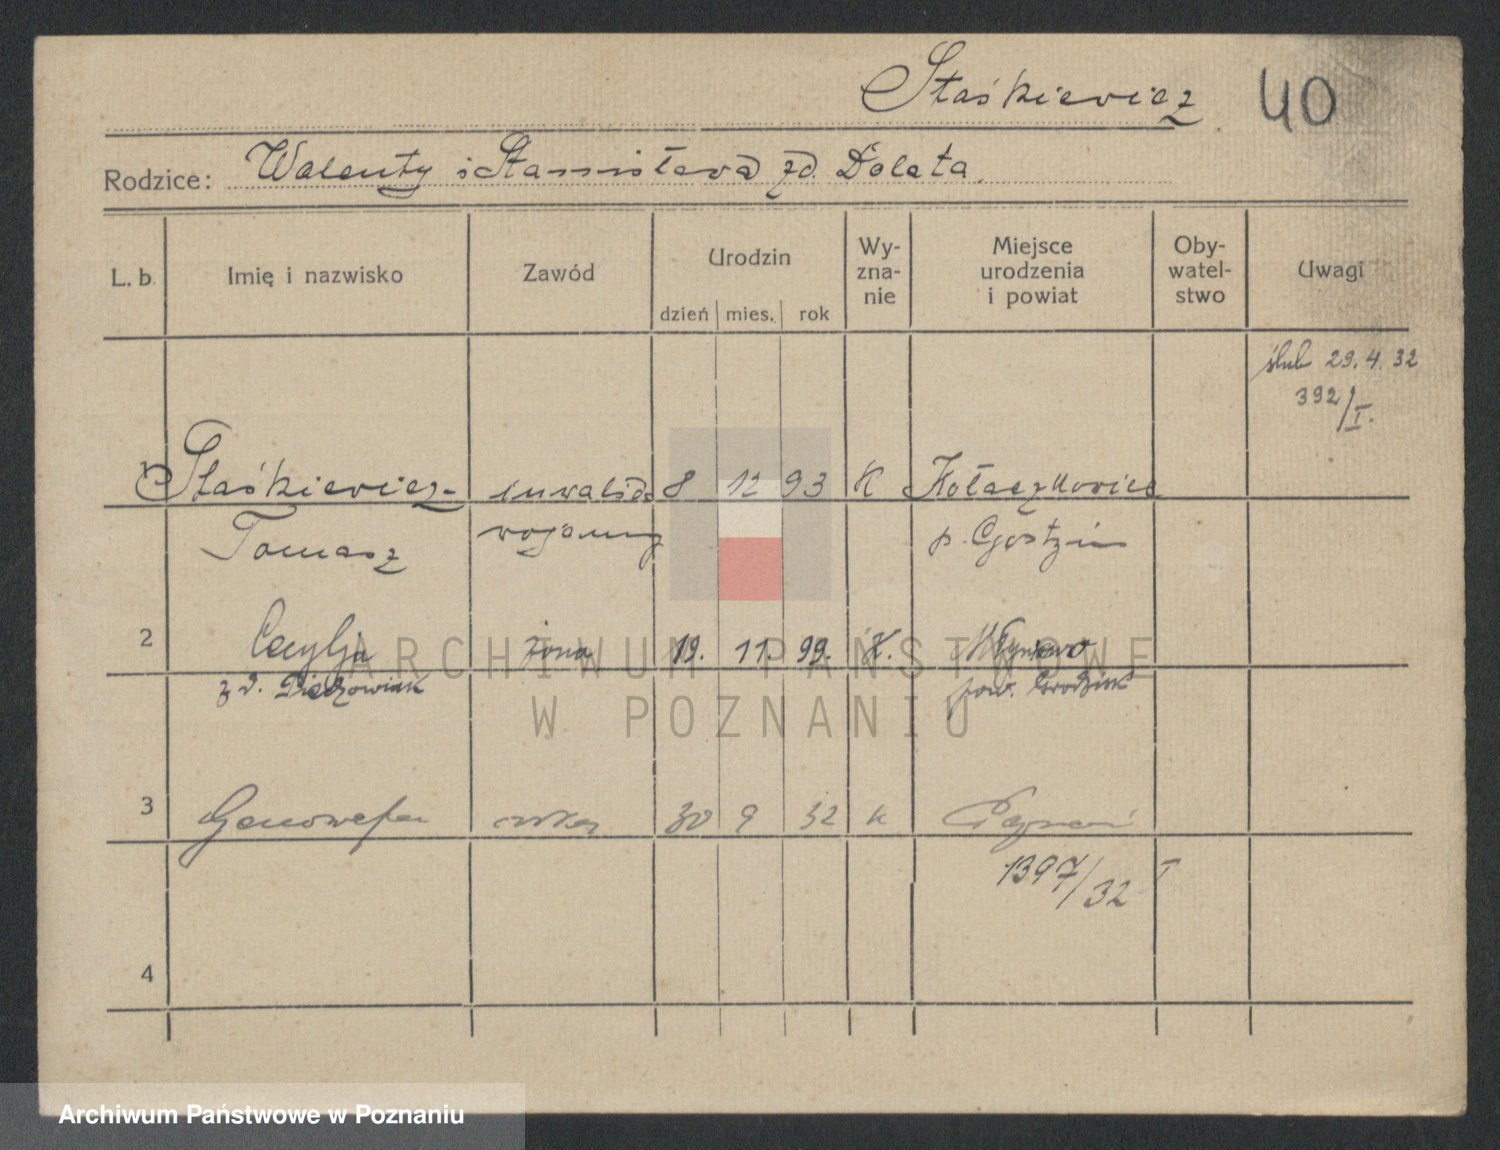 Staśkiewicz 40
Rodzice: Walenty i Stanisława zd. Dolata
L. b. Imię i nazwisko Zawód Urodzin dzień mies. rok Wy-zna-nie Miejsce urodzenia i powiat Oby-watel-stwo Uwagi
ślub 29.4.32
392/I.
1 Staśkiewicz inwalida 8 12 93 K Kołaczkowice
Tomasz wojenny p. Gostyń
2 Cecylja żona 19. 11. 99. K.
z d. pow. Grodzisk
3 Genowefa córka 30 9 32 k Poznań
1397/32 I
4
ARCHIWUM PAŃSTWOWE
W POZNANIU
Archiwum Państwowe w Poznaniu